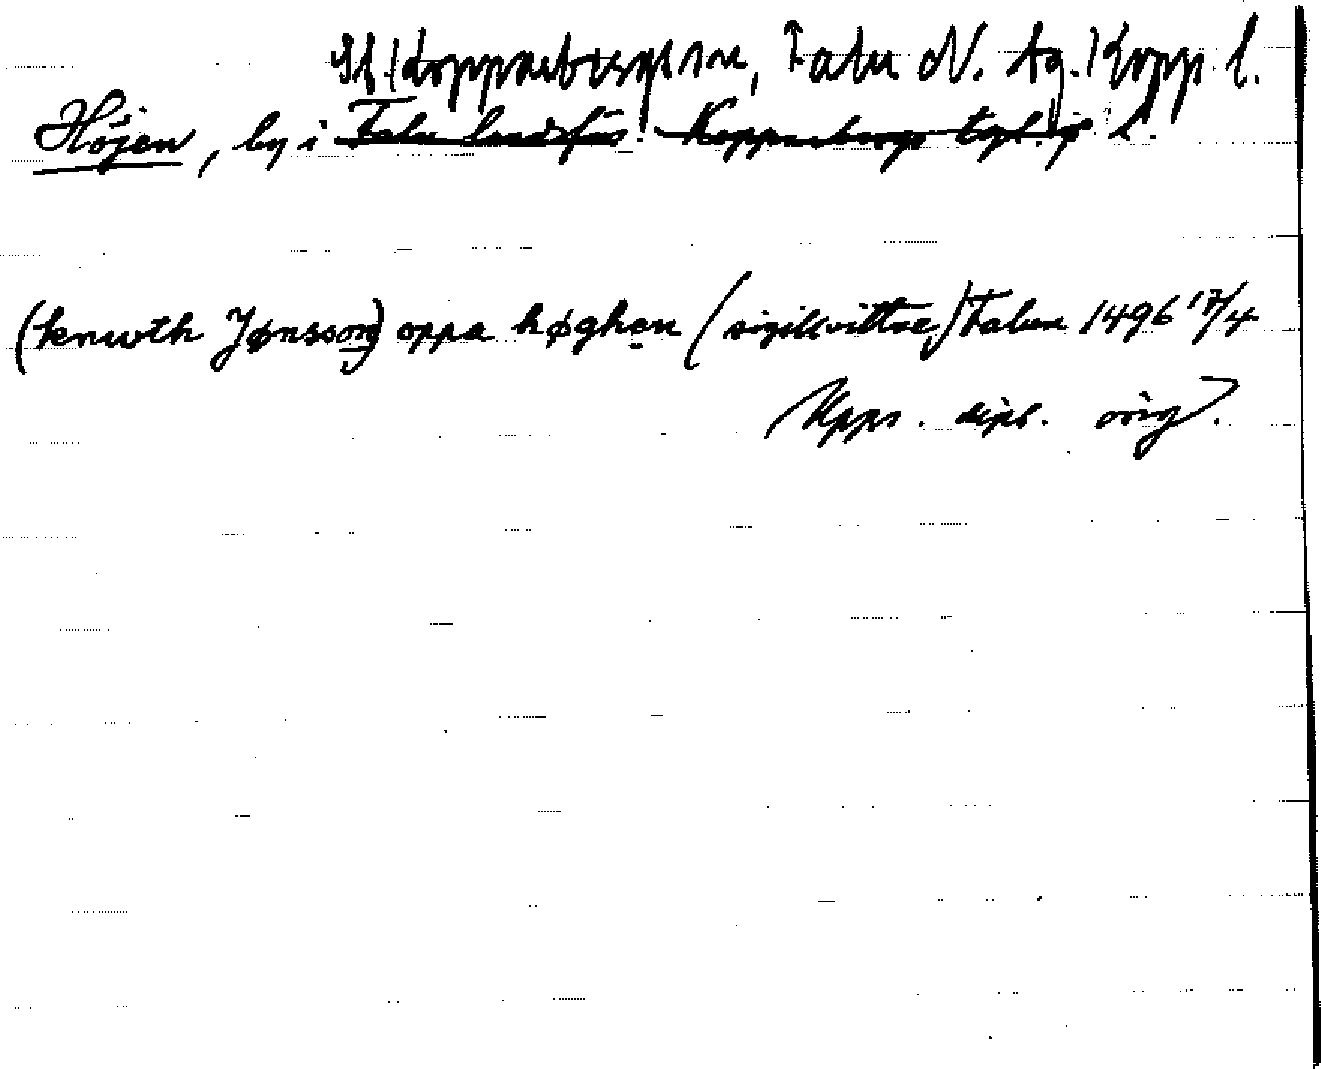 St. Kopparbergs sn, Falu N. tg. Kopp. l.
Höjen, by i Falu landsförs. Kopparbergs tgl. o l.
(knwth Jønsson) oppa høghen (sigillvittne) Falun 1496 17/4
Upps. dipl. orig.